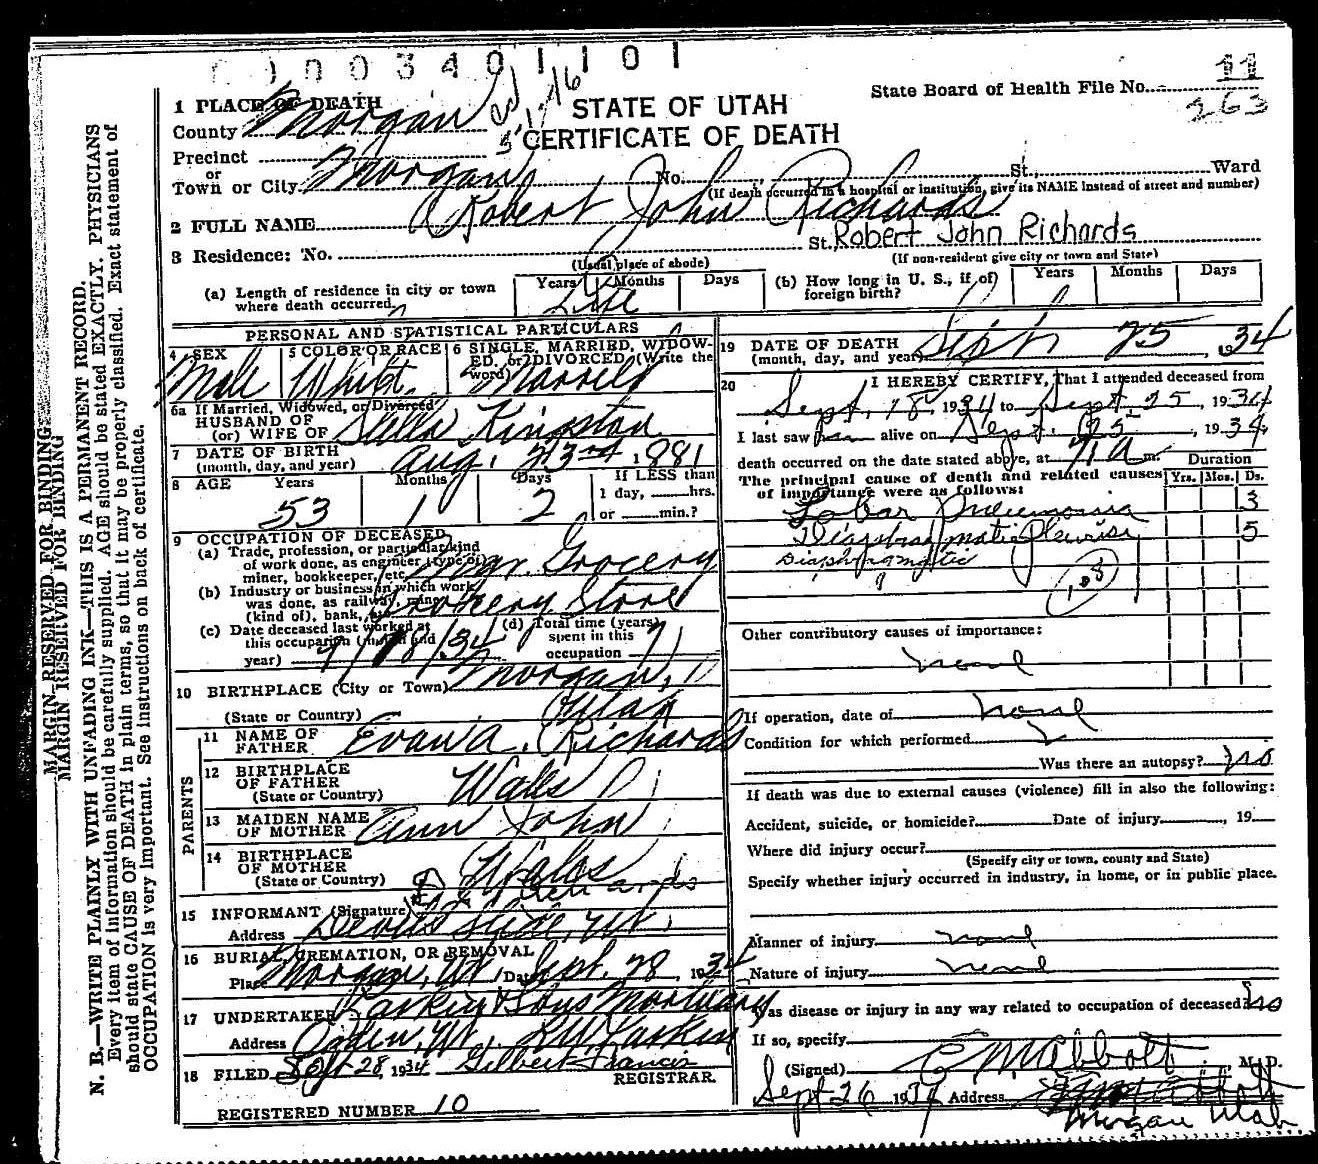 0003401101
11
263
State Board of Health File No.
STATE OF UTAH
CERTIFICATE OF DEATH
1 PLACE OF DEATH
County Morgan
Precinct
or
Town or City Morgan No. St., Ward
(If death occurred in a hospital or institution, give its NAME instead of street and number)
2 FULL NAME Robert John Richards
3 Residence: No. St. Robert John Richards
(Usual place of abode) (If non-resident give city or town and State)
(a) Length of residence in city or town where death occurred. Years Months Days Life
(b) How long in U. S., if of foreign birth? Years Months Days
PERSONAL AND STATISTICAL PARTICULARS
4 SEX Male
5 COLOR OR RACE White
6 SINGLE, MARRIED, WIDOWED, or DIVORCED (Write the word) Married
6a If Married, Widowed, or Divorced
HUSBAND OF
(or) WIFE OF Stella Kingston
7 DATE OF BIRTH
(month, day, and year) Aug. 23rd 1881
8 AGE Years Months Days If LESS than
53 1 2 1 day, hrs.
or min.?
9 OCCUPATION OF DECEASED
(a) Trade, profession, or particular kind of work done, as engineer (type of) miner, bookkeeper, etc. Mgr. Grocery
(b) Industry or business in which work was done, as railway, mine (kind of), bank, etc. Grocery Store
(c) Date deceased last worked at this occupation (month and year) 9/18/34
(d) Total time (years) spent in this occupation
10 BIRTHPLACE (City or Town) Morgan,
(State or Country) Utah
PARENTS
11 NAME OF FATHER Evan A. Richards
12 BIRTHPLACE OF FATHER
(State or Country) Wales
13 MAIDEN NAME OF MOTHER Ann John
14 BIRTHPLACE OF MOTHER
(State or Country) Wales
15 INFORMANT (Signature)
Address Devils Slide, Ut.
16 BURIAL, CREMATION, OR REMOVAL
Place Morgan, Ut Date Sept. 28, 1934
17 UNDERTAKER Larkin & Sons Mortuary
Address Ogden, Ut.
18 FILED Sept 28, 1934 Gilbert Francis
REGISTRAR.
REGISTERED NUMBER 10
19 DATE OF DEATH
(month, day, and year) Sept 25, 1934
20 I HEREBY CERTIFY, That I attended deceased from
Sept. 18, 1934 to Sept. 25, 1934
I last saw him alive on Sept. 25, 1934,
death occurred on the date stated above, at 7 a m. Duration
The principal cause of death and related causes of importance were as follows: Yrs. Mos. Ds.
Lobar Pneumonia 3
Diaphragmatic Pleurisy 5
Diaphragmatic
108
Other contributory causes of importance:
none
If operation, date of none
Condition for which performed
Was there an autopsy? no
If death was due to external causes (violence) fill in also the following:
Accident, suicide, or homicide? Date of injury , 19
Where did injury occur?
(Specify city or town, county and State)
Specify whether injury occurred in industry, in home, or in public place.
Manner of injury none
Nature of injury none
Was disease or injury in any way related to occupation of deceased? no
If so, specify
(Signed) , M.D.
Sept 26 1934 Address
Morgan Utah
MARGIN RESERVED FOR BINDING
MARGIN RESERVED FOR BINDING
N. B.—WRITE PLAINLY WITH UNFADING INK—THIS IS A PERMANENT RECORD.
Every item of information should be carefully supplied. AGE should be stated EXACTLY. PHYSICIANS
should state CAUSE OF DEATH in plain terms, so that it may be properly classified. Exact statement of
OCCUPATION is very important. See instructions on back of certificate.